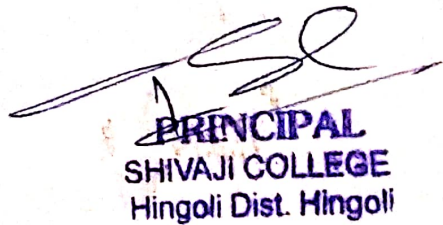 PRINCIPAL
SHIVAJI COLLEGE
Hingoli Dist. Hingoli